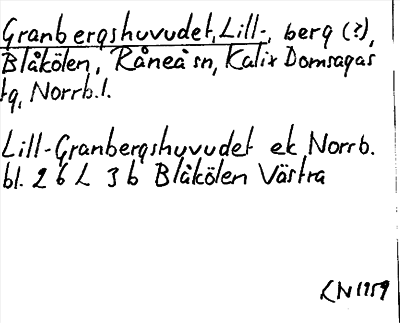 Granbergshuvudet, Lill-, berg (?),
Blåkölen, Råneå sn, Kalix Domsagas
tg, Norrb. l.
Lill-Granbergshuvudet ek Norrb.
bl. 26 L 3b Blåkölen Västra
KN 1959